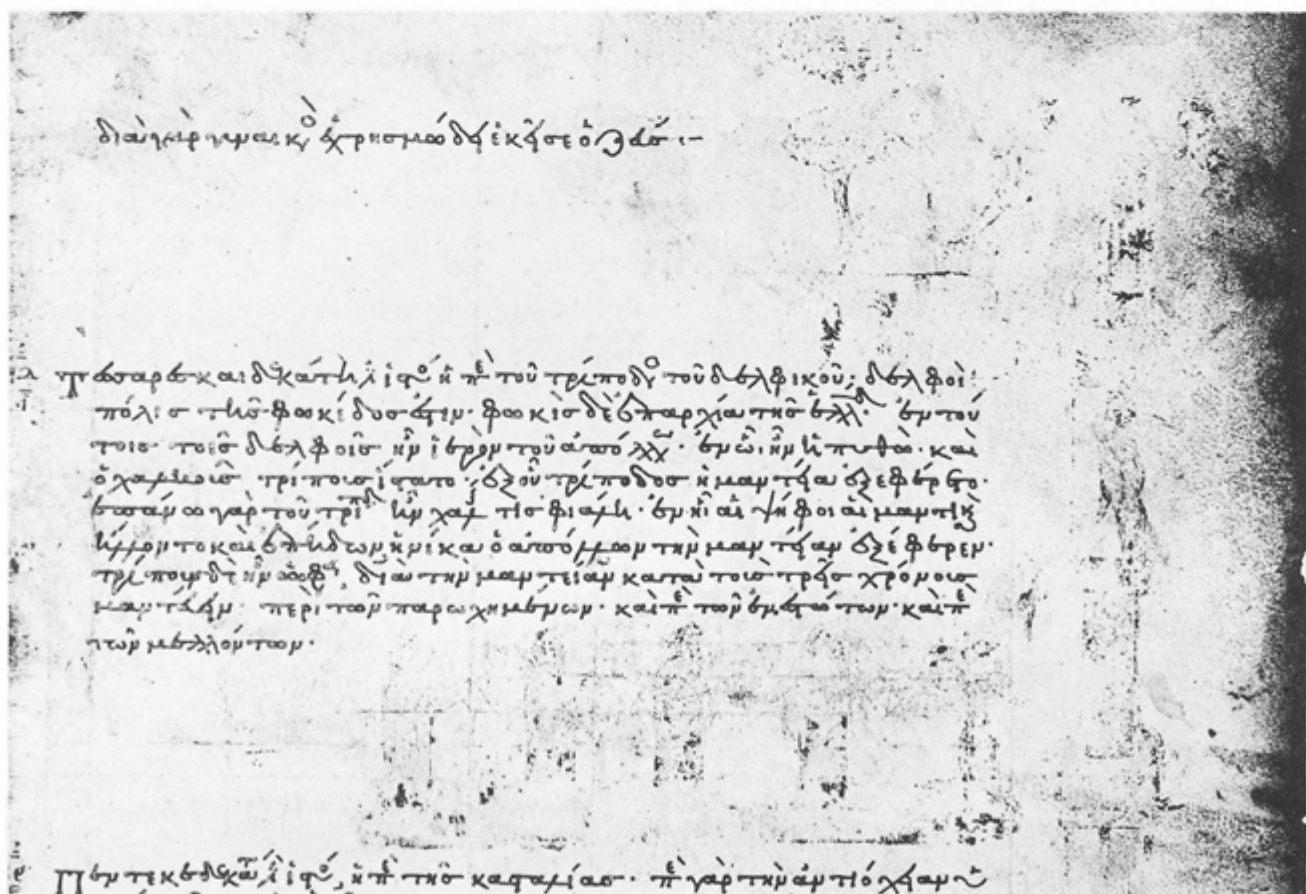 διὰ γὰρ γυναικὸ ἐχρησμώδει ἐκεῖσε ὁ ζεύς·
Τεσσαρεσκαιδεκάτη ἱστο ἡ πε τοῦ τρίποδο τοῦ δελφικοῦ· δελφοὶ
πόλις τῆς φωκίδος ἐστιν· φωκὶς δὲ ἐπαρχία τῆς ἑλλάδ· ἐν τού
τοις τοῖς δελφοῖς ἦν ἱερὸν τοῦ ἀπόλλ· ἐν ὧι ἦν ἡ πυθώ· καὶ
ὁ χαλκοῦς τρίπους ἵστατο· ἐξ οὗ τρίποδος ἡ μαντεία ἐξεφέρετο·
ἐπάνω γὰρ τοῦ τρίπ ἦν χαλκ τις φιάλη· ἐν ἧι αἱ ψῆφοι αἱ μαντικ
ἥλλοντο καὶ ἐπήδων ἡνίκα ὁ ἀπόλλων τὴν μαντείαν ἐξέφερεν·
τρίπουν δὲ ἦν διὰ τὴν μαντείαν κατὰ τοὺς τρεῖς χρόνους
μαντεύειν· περὶ τῶν παρωχημένων· καὶ πε τῶν ἐνεστώτων· καὶ πε
τῶν μελλόντων·
Πεντεκεδεκάτη ἱστο ἡ πε τῆς κασταλίας· πε γὰρ τὴν ἀντιόχειαν